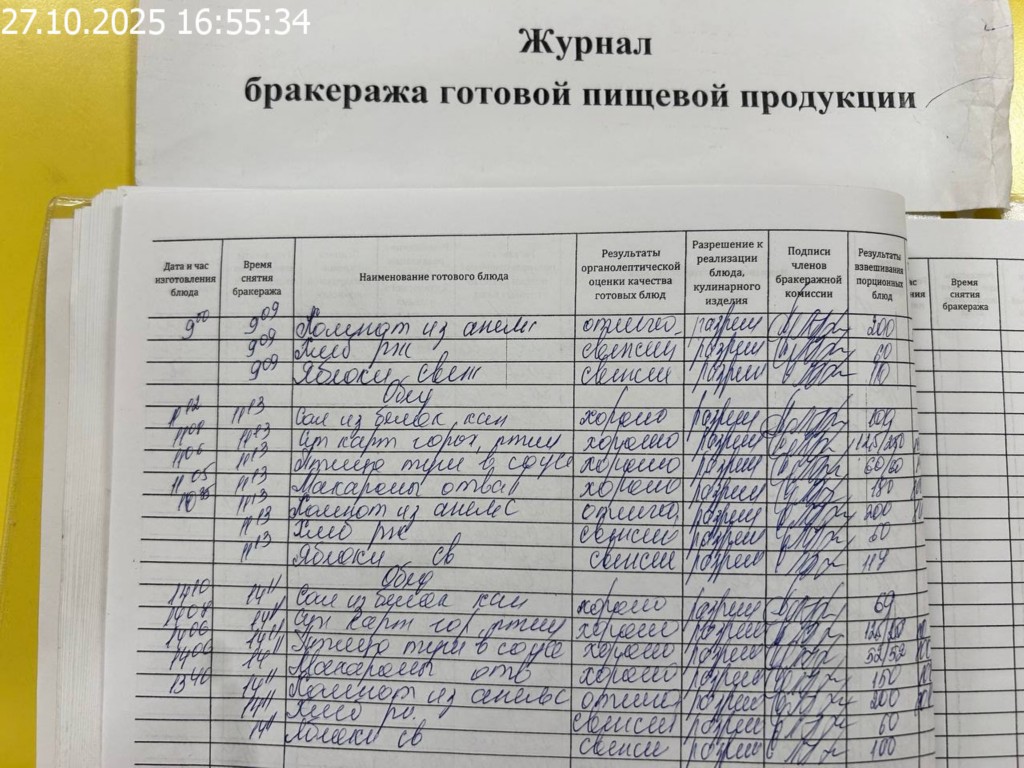 27.10.2025 16:55:34
Журнал
бракеража готовой пищевой продукции
Дата и час изготовления блюда
Время снятия бракеража
Наименование готового блюда
Результаты органолептической оценки качества готовых блюд
Разрешение к реализации блюда, кулинарного изделия
Подписи членов бракеражной комиссии
Результаты взвешивания порционных блюд
Время снятия бракеража
9 00 9 09 Компот из апельс отлично разреш 200
9 09 Хлеб рж свежий разреш 60
9 09 Яблоки свеж свежий разреш 110
Обед
11 12 11 13 Сал из белок кап хорошо разреш 100
11 08 11 13 Суп карт горох, птиц хорошо разреш 125/250
11 06 11 13 птицы туш в соусе хорошо разреш 60/60
11 05 11 13 Макароны отвар хорошо разреш 180
11 13 Компот из апельс отлично разреш 200
11 13 Хлеб рж свежий разреш 60
11 13 Яблоки св свежий разреш 117
Обед
14 10 14 11 Сал из белок кап хорошо разреш
14 08 14 11 Суп карт гор птиц хорошо разреш 125/250
14 06 14 11 птицы туш в соусе хорошо разреш 52/52
14 00 14 11 Макароны отв хорошо разреш 150
13 40 14 11 Компот из апельс отличн разреш 200
14 11 Хлеб рж свежий разреш 60
14 11 Яблоки св свежий разреш 100